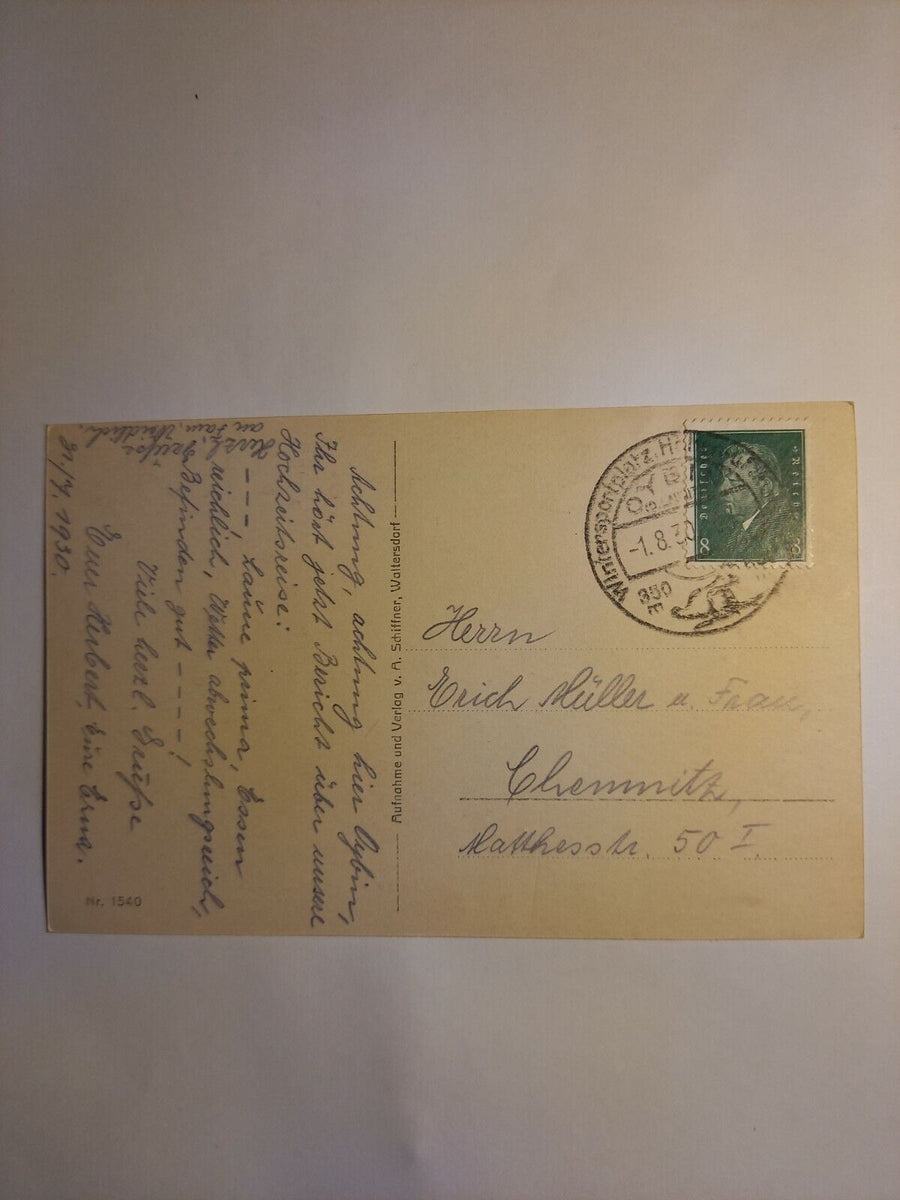 31./7. 1930.
Achtung, achtung hier Oybin,
Ihr hört jetzt Bericht über unsere
Hochzeitsreise:
– – – –, Laune prima, Essen
reichlich, Wetter abwechslungsreich,
Befinden gut – – – –!
Viele herzl. Grüße
Euer Herbert, Eure Erna.
Herzl. Grüße
an Fam.
Nr. 1540
Aufnahme und Verlag v. A. Schiffner, Waltersdorf
Wintersportplatz
OYBIN
-1.8.30
850
m
Deutsches Reich
8 8
Herrn
Erich Müller u. Frau,
Chemnitz,
Matthesstr. 50 I.